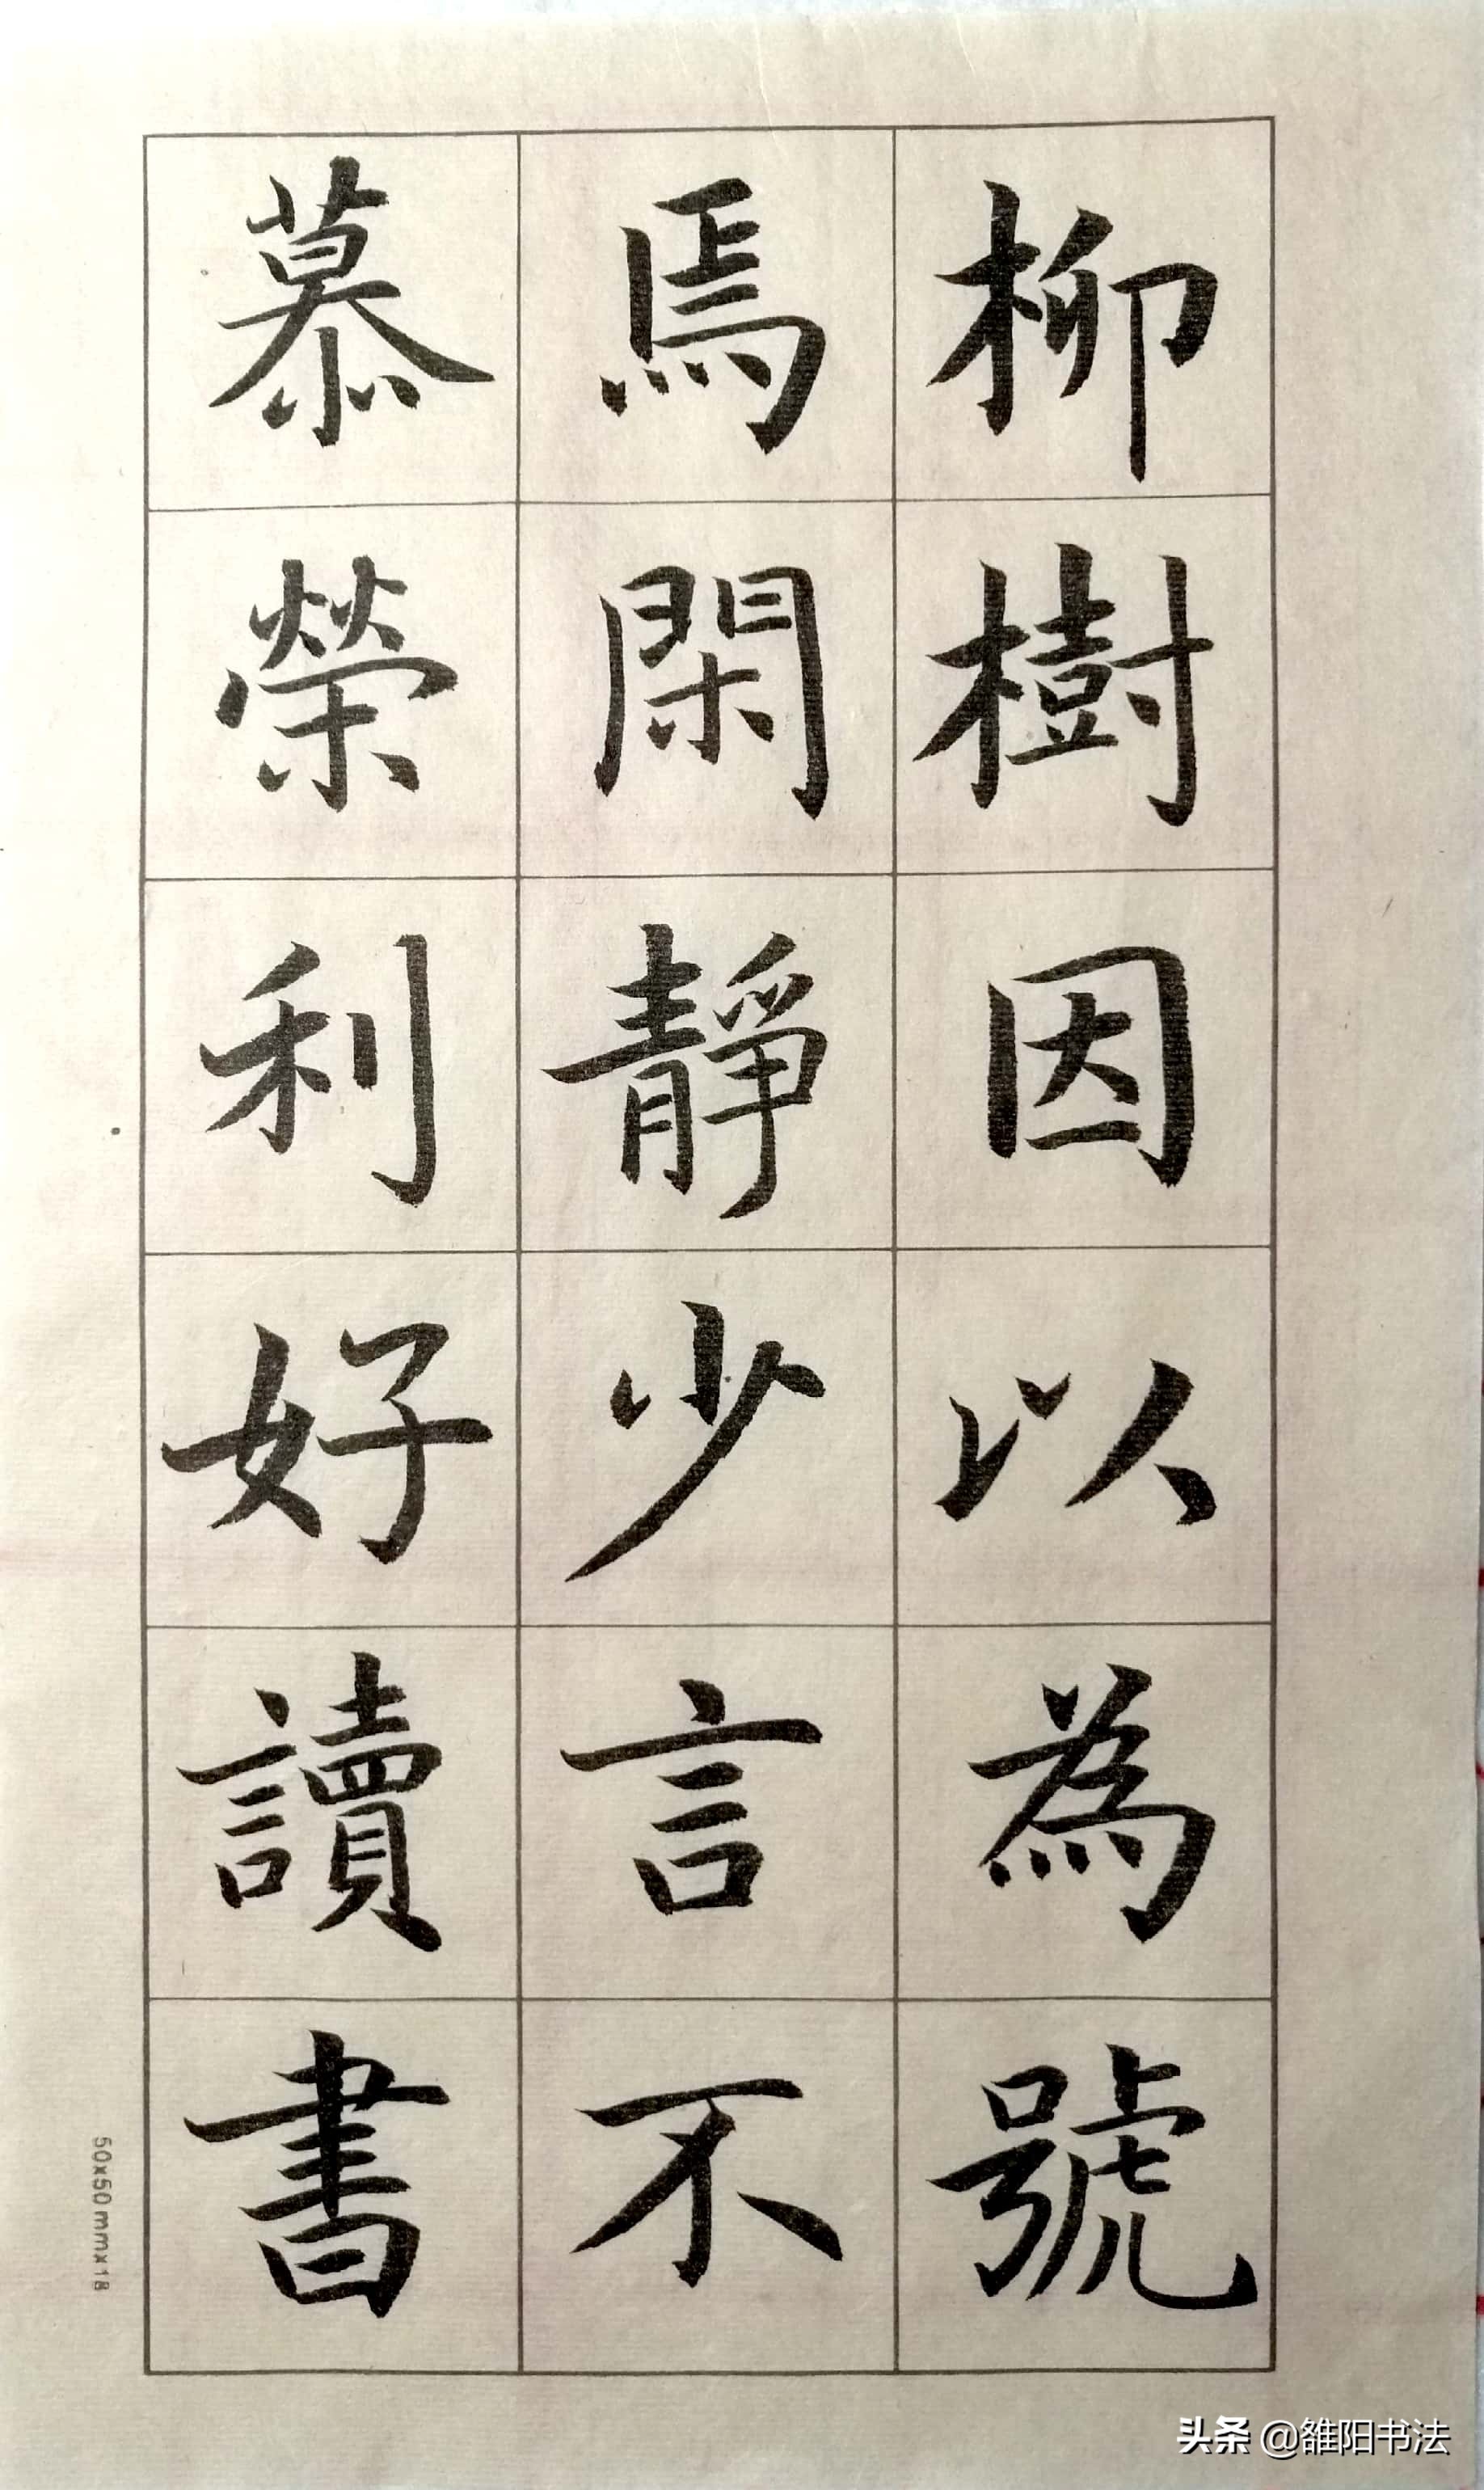 柳樹因以為號
焉閑靜少言不
慕榮利好讀書
50x50mmx18
头条 @雒阳书法